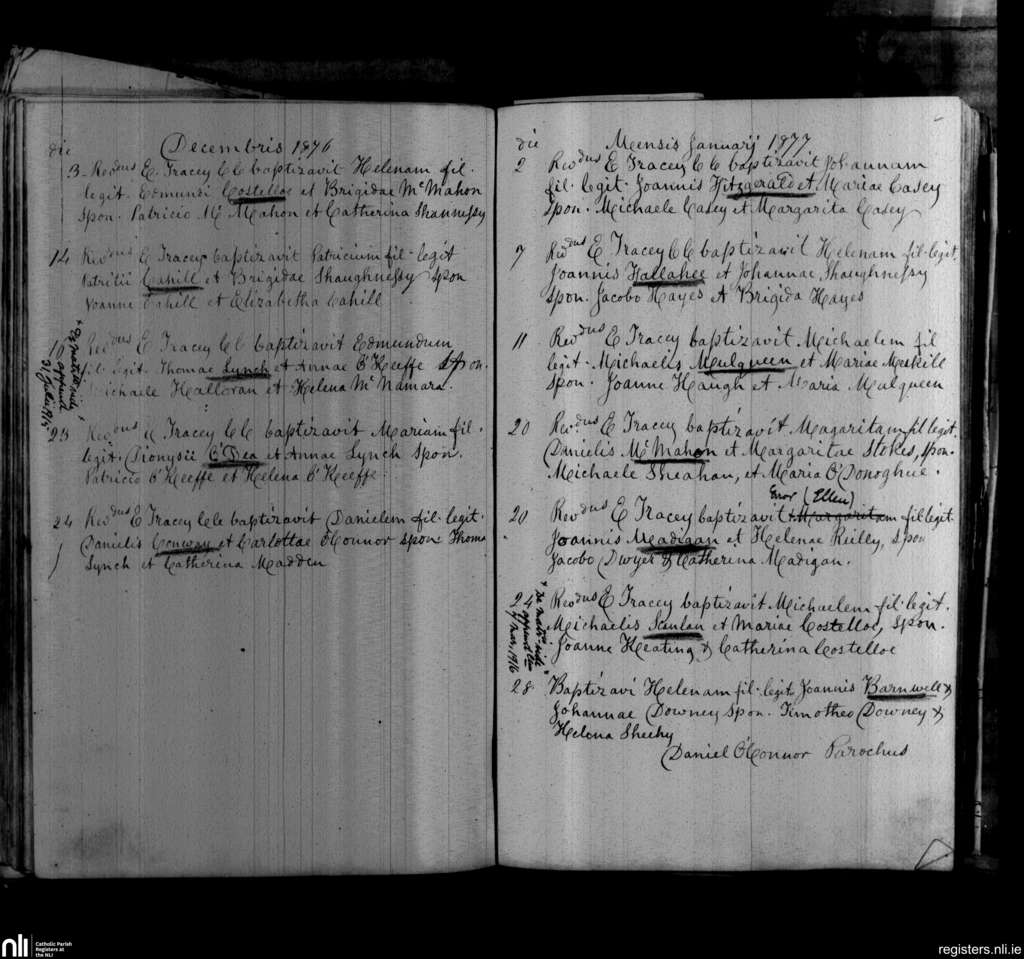 die Decembris 1876
3 Revdus E Tracey CC baptizavit Helenam fil.
legit. Edmundi Costelloe et Brigidae McMahon
Spon. Patricio McMahon et Catherina Shaunnessy
14 Revdus E Tracey baptizavit Patricium fil. legit
Patritii Cahill et Brigidae Shaughnessy Spon
Joanne Cahill et Elizabetha Cahill
Revdus E Tracey CC baptizavit Edmundum
fil. legit. Thomae Lynch et Annae O'Keeffe Spon.
Michaele Halloran et Helena McNamara.
23 Revdus E Tracey CC baptizavit Mariam fil.
legit. Dionysii O'Dea et Annae Lynch Spon.
Patricio O'Keeffe et Helena O'Keeffe.
24 Revdus E Tracey CC baptizavit Danielem fil. legit.
Danielis Conway et Carlottae O'Connor Spon Thoma
Lynch et Catherina Madden
die Mensis Januarij 1877
2 Revdus E Tracey CC baptizavit Johannam
fil. legit. Joannis Fitzgerald et Mariae Casey
Spon. Michaele Casey et Margarita Casey
7 Revdus E Tracey CC baptizavit Helenam fil. legit.
Joannis Hallahee et Johannae Shaughnessy
Spon. Jacobo Hayes et Brigida Hayes
11 Revdus E Tracey baptizavit Michaelem fil
legit. Michaelis Mulqueen et Mariae Meskill
Spon. Joanne Haugh et Maria Mulqueen
20 Revdus E Tracey baptizavit Magaritam fil legit.
Danielis McMahon et Margaritae Stokes, Spon.
Michaele Sheahan, et Maria O'Donoghue.
Error (Ellen)
20 Revdus E Tracey baptizavit Margaritam fil legit.
Joannis Madigan et Helenae Reilly, Spon
Jacobo Dwyer & Catherina Madigan.
24 Revdus E Tracey baptizavit Michaelem fil. legit.
Michaelis Scanlan et Mariae Costelloe, Spon.
Joanne Keating & Catherina Costelloe
7 Mar. 1916
28 Baptizavi Helenam fil. legit Joannis Barnwell &
Johannae Downey Spon. Timotheo Downey &
Helena Sheehy
Daniel O'Connor Parochus
nli Catholic Parish
Registers at
the NLI
registers.nli.ie